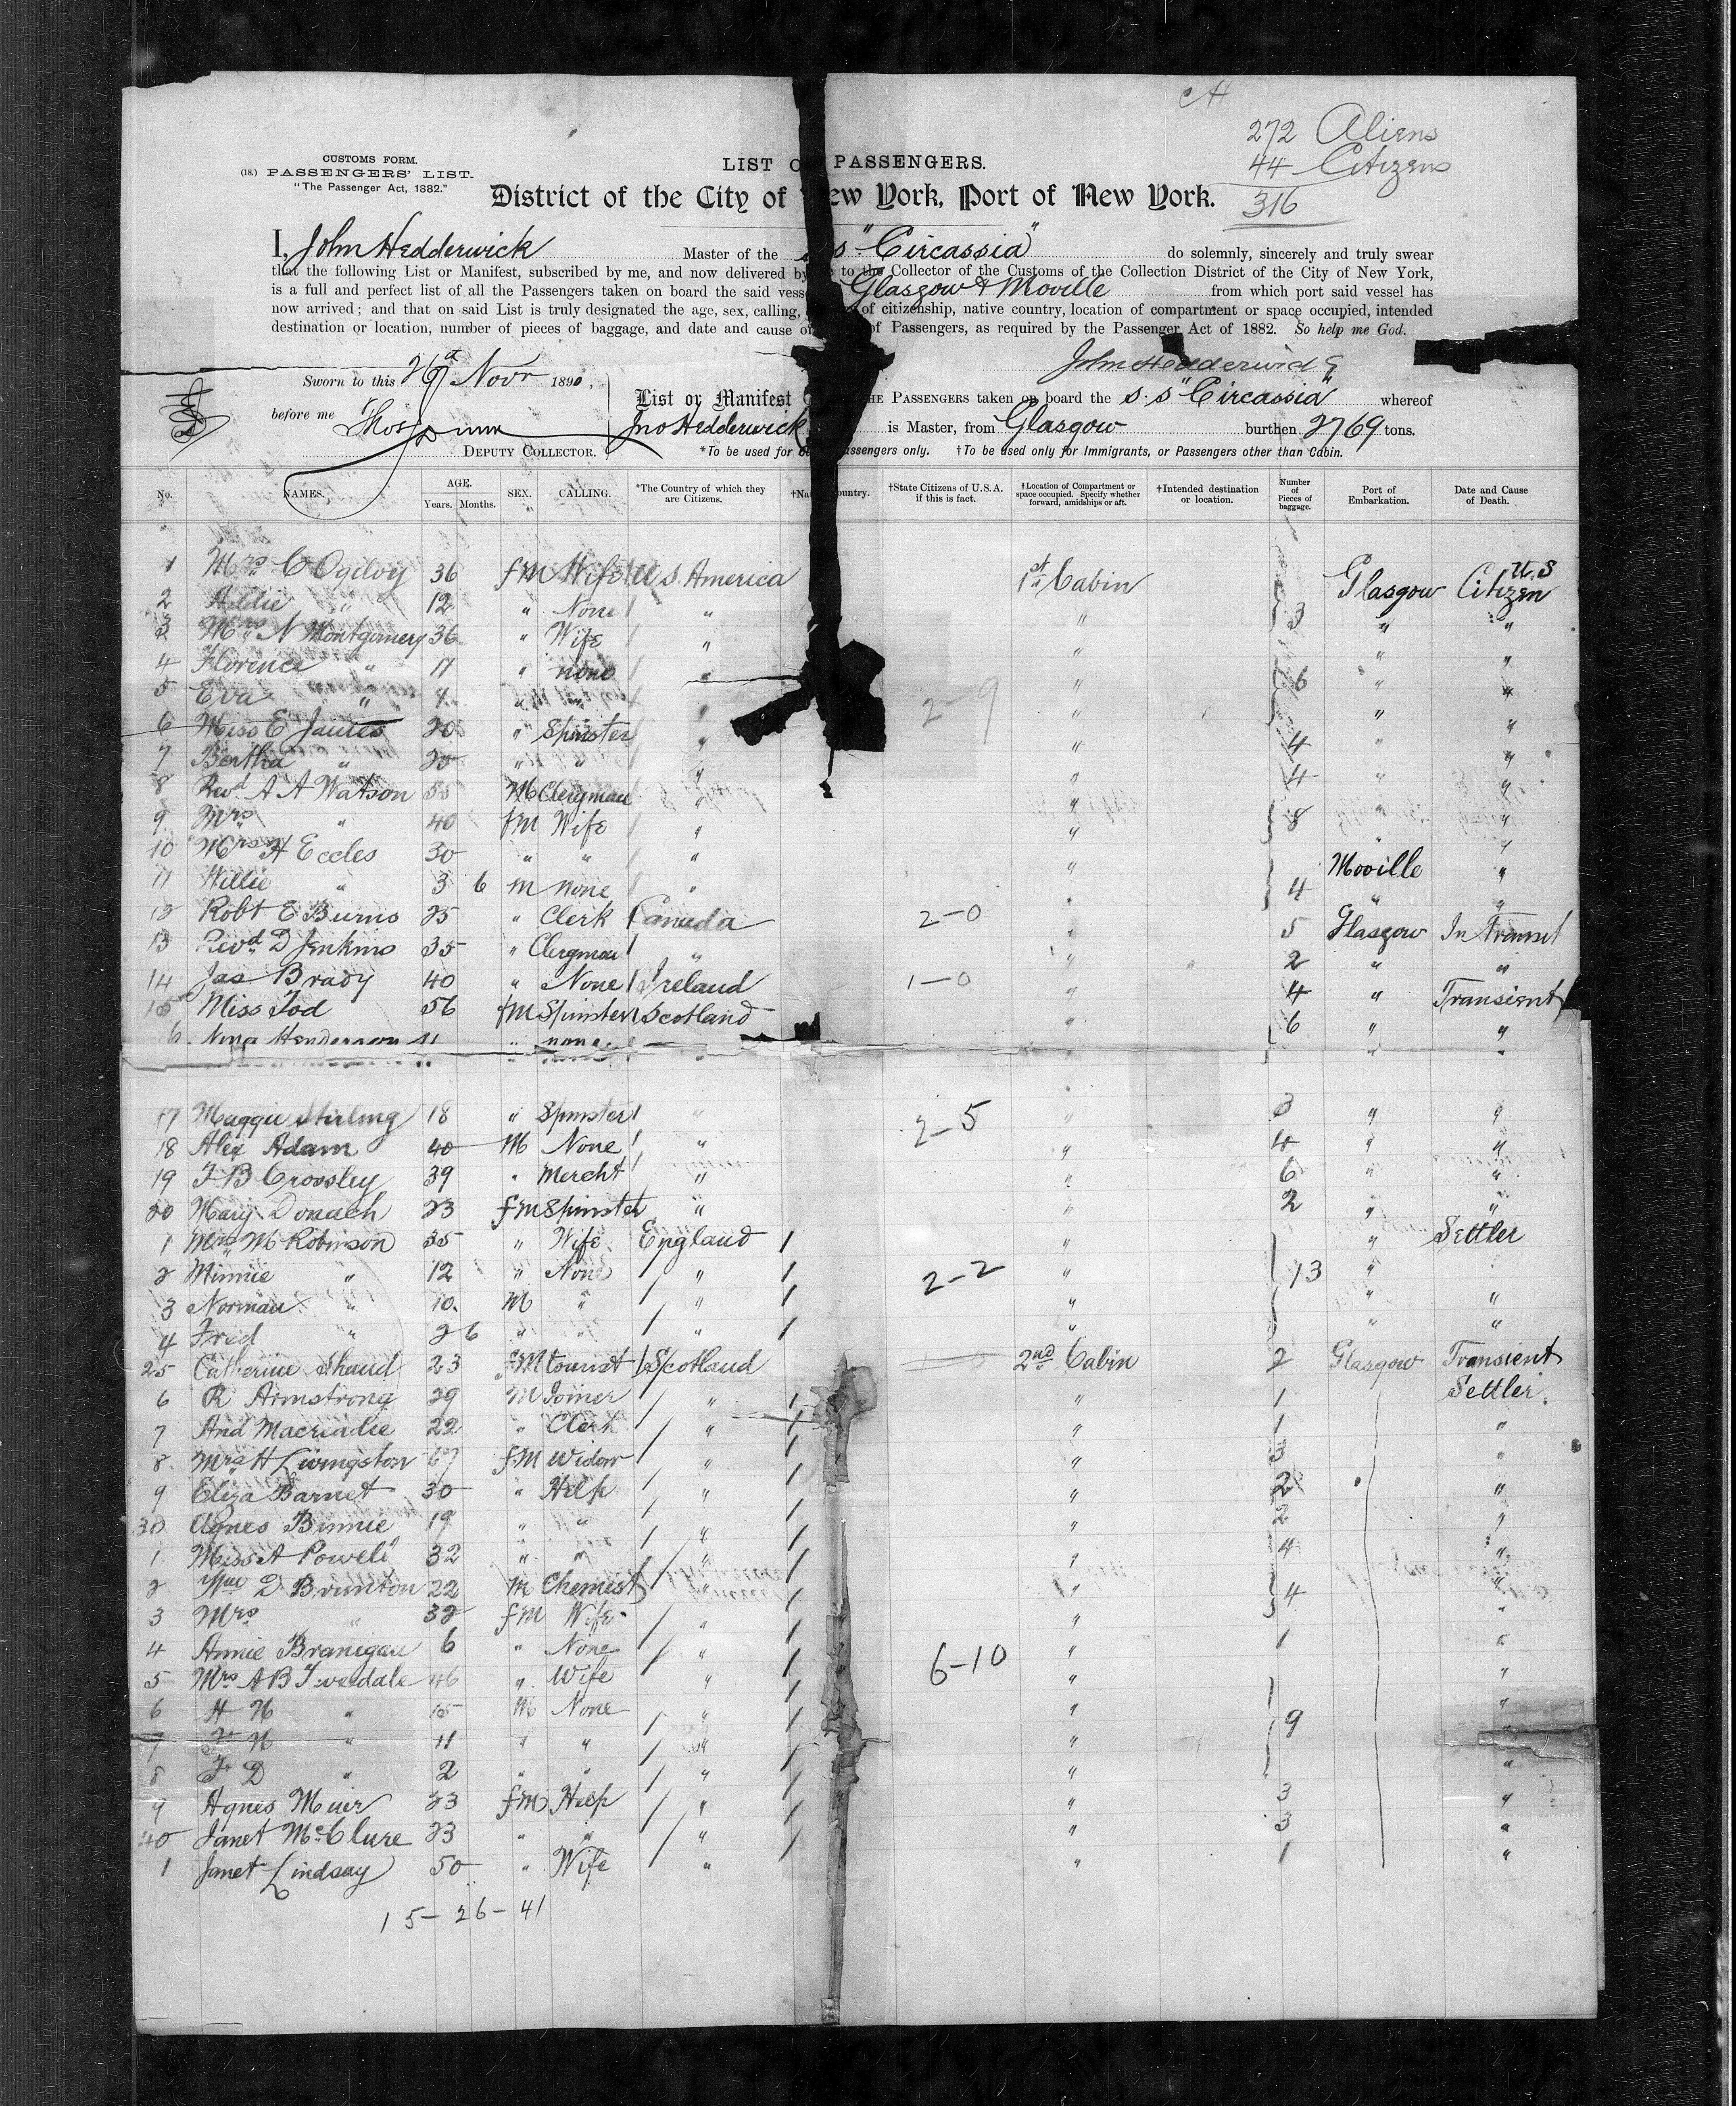 272 Aliens
44 Citizens
316
CUSTOMS FORM.
(18.) PASSENGERS' LIST.
"The Passenger Act, 1882."
LIST O PASSENGERS.
District of the City of New York, Port of New York.
I, John Hedderwick Master of the SS "Circassia" do solemnly, sincerely and truly swear
that the following List or Manifest, subscribed by me, and now delivered by me to the Collector of the Customs of the Collection District of the City of New York,
is a full and perfect list of all the Passengers taken on board the said vessel Glasgow & Moville from which port said vessel has
now arrived; and that on said List is truly designated the age, sex, calling, of citizenship, native country, location of compartment or space occupied, intended
destination or location, number of pieces of baggage, and date and cause of of Passengers, as required by the Passenger Act of 1882. So help me God.
John Hedderwick
Sworn to this 26 Novr 1890,
before me
DEPUTY COLLECTOR.
List or Manifest THE PASSENGERS taken on board the S.S "Circassia" whereof
Jno Hedderwick is Master, from Glasgow burthen 2769 tons.
*To be used for Passengers only. †To be used only for Immigrants, or Passengers other than Cabin.
No. NAMES. AGE. Years. Months. SEX. CALLING. *The Country of which they are Citizens. †Na Country. †State Citizens of U.S.A. if this is fact. †Location of Compartment or space occupied. Specify whether forward, amidships or aft. †Intended destination or location. Number of Pieces of baggage. Port of Embarkation. Date and Cause of Death.
1 Mrs C Ogilvy 36 fm Wife U S America 1st Cabin Glasgow U.S Citizen
2 Addie " 12 " None " " 3 " "
3 Mrs N Montgomery 36 " Wife " " " "
4 Florence " 11 " none " " 6 " "
5 Eva " 4 " " " " " "
6 Miss E James 20 " Spinster " " 4 " "
7 Bertha " 20 " " " " 4 " "
8 Revd A A Watson 55 M Clergman " " 8 " "
9 Mrs " 40 fm Wife " " " "
10 Mrs H Eccles 30 " " " " Moville "
11 Willie " 3 6 m none " " 4 " "
12 Robt E Burns 25 " Clerk Canada 2-0 " 5 Glasgow In Transit
13 Revd D Jenkins 35 " Clergman " " 2 " "
14 Jas Brady 40 " None Ireland 1-0 " 4 " Transient
15 Miss Tod 56 fm Spinster Scotland " 6 " "
6 Nina Henderson 11 " none " " "
17 Maggie Stirling 18 " Spinster " 2-5 " 3 " "
18 Alex Adam 40 M None " " 4 " "
19 J B Crossley 39 " Mercht " " 6 " "
20 Mary Donach 23 fm Spinster " " 2 " "
1 Mrs M Robinson 35 " Wife England " " Settler
2 Minnie " 12 " None " 2-2 " 13 "
3 Norman " 10 M " " " " "
4 Fred " 2 6 " " " " " "
25 Catherine Shaud 23 fm tourist Scotland 2nd Cabin 2 Glasgow Transient
6 R Armstrong 29 M Joiner " " 1 Settler
7 And Macriadie 22 " Clerk " " 1 "
8 Mrs H Livingston 67 fm Widow " " 3 "
9 Eliza Barnet 30 " Help " " 2 "
30 Agnes Binnie 19 " " " " 2 "
1 Miss A Powell 32 " " " " 4 "
2 Wm D Brunton 22 M Chemist " " 4 "
3 Mrs " 32 fm Wife " " "
4 Annie Branigan 6 " None " " 1 "
5 Mrs A B Tweedale 46 " Wife " 6-10 " "
6 H N " 15 M None " " "
7 N " 11 " " " " 9 "
8 D " 2 " " " " "
9 Agnes Muir 23 fm Help " " 3 "
40 Janet McClure 23 " " " " 3 "
1 Janet Lindsay 50 " Wife " " 1 "
15-26-41
2-9